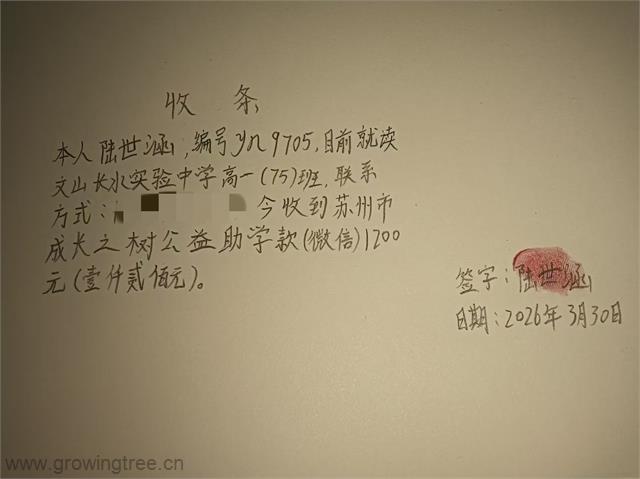 收条
本人陆世涵,编号yn9705,目前就读
文山长水实验中学高一(75)班,联系
方式: 今收到苏州市
成长之树公益助学款(微信)1200
元(壹仟贰佰元)。
签字:陆世涵
日期:2026年3月30日
www.growingtree.cn